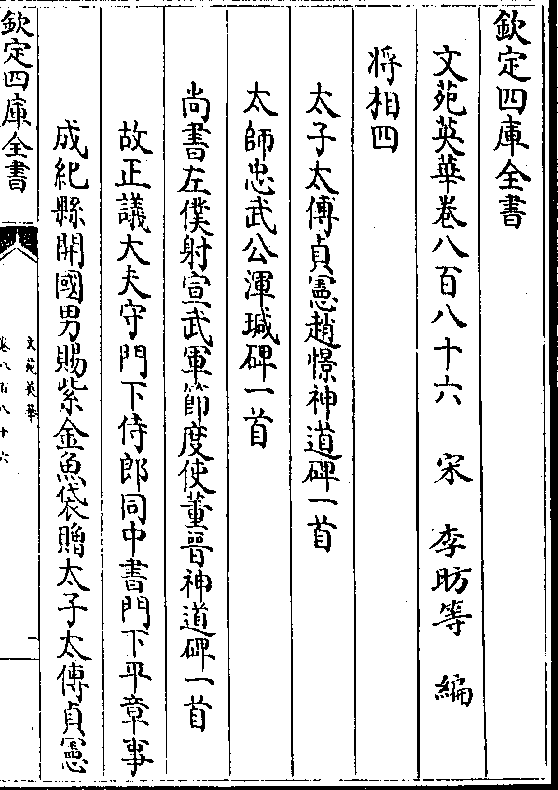 欽定四庫全書
文苑英華卷八百八十六 宋 李昉等 編
將相四
太子太傅貞憲趙憬神道碑一首
太師忠武公渾瑊碑一首
尚書左僕射宣武軍節度使董晉神道碑一首
故正議大夫守門下侍郎同中書門下平章事
成紀縣開國男賜紫金魚袋贈太子太傅貞憲
欽定四庫全書
文苑英華
卷八百八十六
一